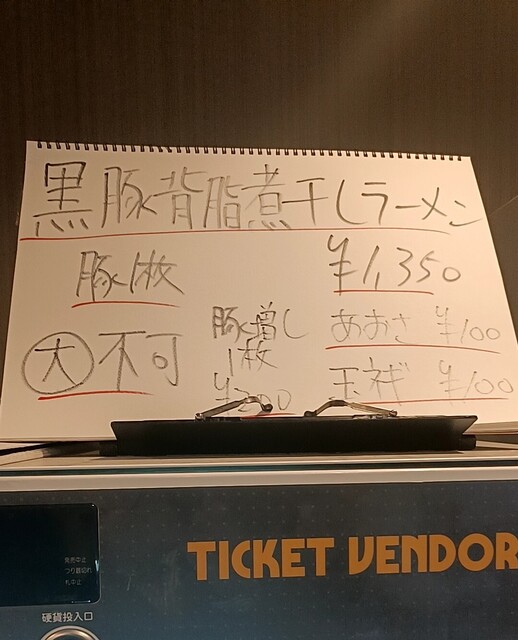 黒豚背脂煮干しラーメン
豚1枚 ¥1,350
大 不可
豚増し
1枚
あおさ ¥100
玉ネギ ¥100
発売中止
つり銭切れ
札中止
TICKET VENDOR
硬貨投入口